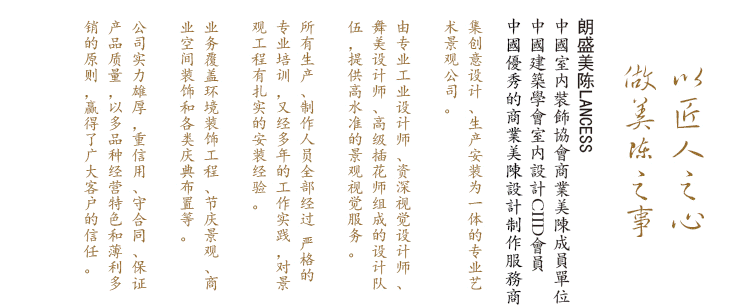 以匠人之心
做美陈之事
朗盛美陈LANCESS
中國室内裝飾協會商業美陳成員單位
中國建築學會室内設計CIID會員
中國優秀的商業美陳設計制作服務商
集创意设计、生产安装为一体的专业艺
术景观公司。
由专业工业设计师、资深视觉设计师、
舞美设计师、高级插花师组成的设计队
伍,提供高水准的景观视觉服务。
所有生产、制作人员全部经过 严格的
专业培训,又经多年的工作实践,对景
观工程有扎实的安装经验。
业务覆盖环境装饰工程、节庆景观、商
业空间装饰和各类庆典布置等。
公司实力雄厚,重信用、守合同、保证
产品质量,以多品种经营特色和薄利多
销的原则,赢得了广大客户的信任。